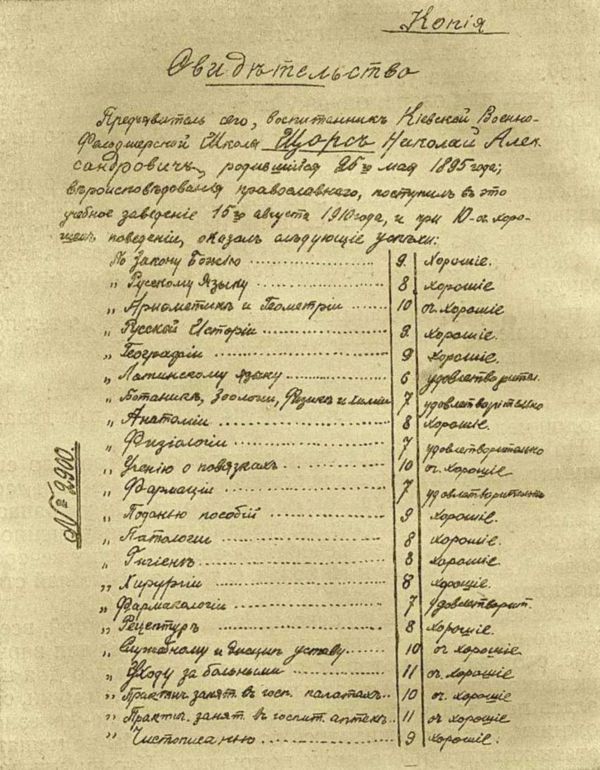 Копія
Свидѣтельство
Предъявитель сего, воспитанникъ Кіевской Военно-
Фельдшерской Школы Щорсъ Николай Алек-
сандровичъ, родившійся 25го мая 1895 года,
вѣроисповѣданія православнаго, поступилъ въ это
учебное заведеніе 15го августа 1910 года, и при 10-оч. хоро-
шемъ поведеніи, оказалъ слѣдующіе успѣхи:
По Закону Божію 9 Хорошіе.
„ Русскому Языку 8 Хорошіе.
„ Ариѳметикѣ и Геометріи 10 оч. хорошіе
„ Русской Исторіи 9. хорошіе.
„ Географіи 9 Хорошіе.
„ Латинскому языку 6 удовлетворител.
„ Ботаникѣ, Зоологіи, Физикѣ и химіи 7 удовлетворительно
„ Анатоміи 8 Хорошіе.
„ Физіологіи 7 удовлетворительно
„ Ученію о повязкахъ 10 оч. хорошіе
„ Фармаціи 7 удовлетворительн
„ Поданью пособій 9 Хорошіе.
„ Патологіи 8 Хорошіе.
„ Гигіенѣ 8 Хорошіе.
„ Хирургіи 8 хорошіе.
„ Фармакологіи 7 Удовлетворит.
„ Рецептурѣ 8 Хорошіе.
„ Служебному и дисцип. уставу 10 оч. хорошіе
„ Уходу за больными 11 оч. хорошіе
„ Практич. занят. въ госп. палатахъ 10 оч. хорошіе
„ Практич. занят. въ госпит. аптекѣ 11 оч хорошіе
„ Чистописанью 9 Хорошіе.
№ 2900.